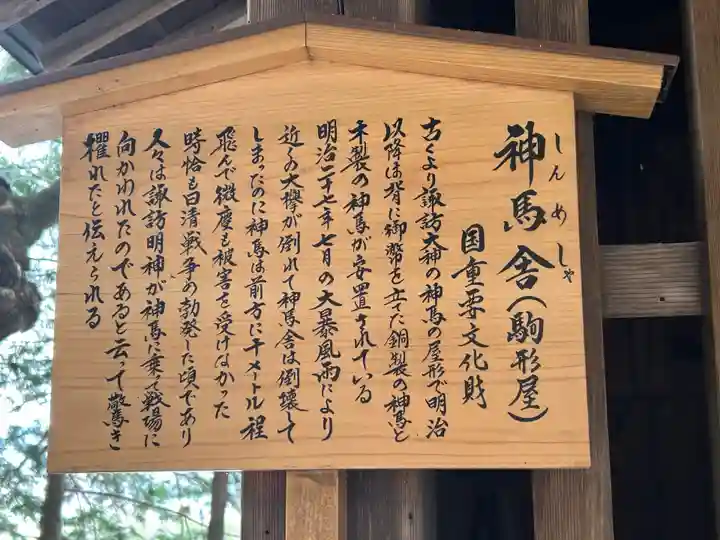 神馬舎(駒形屋)
しんめしゃ
国重要文化財
古くより諏訪大神の神馬の屋形で明治
以降は背に御幣を立てた銅製の神馬と
木製の神馬が安置されている
明治二十七年七月の大暴風雨により
近くの大欅が倒れて神馬舎は倒壊して
しまったのに神馬は前方に千メートル程
飛んで微塵も被害を受けなかった
時恰も日清戦争の勃発した頃であり
人々は諏訪明神が神馬に乗て戦場に
向かわれたのであると云って驚き
懼れたと伝えられる